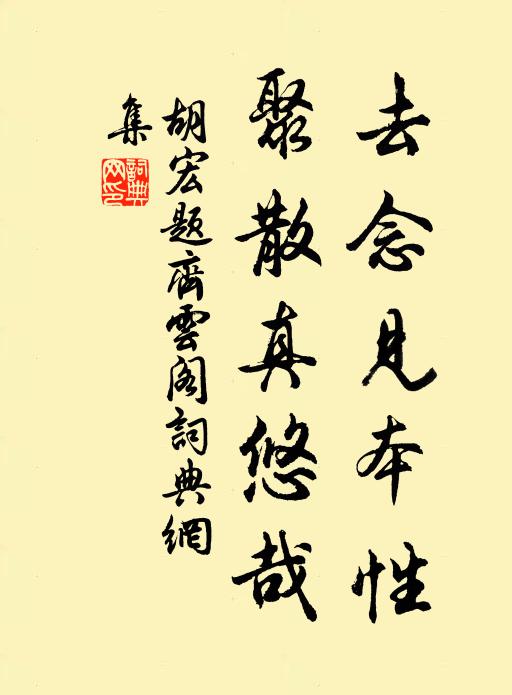 去念見本性
聚散真悠哉
胡宏题齊雲阁詞典網
集
詞典
网印